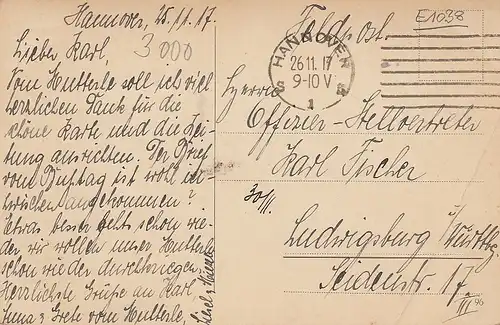 Hannover, 25.11.17.
Lieber Karl,
3000
Vom Mutterle soll ich viel
herzlichen Dank für die
schöne Karte und die Zei-
tung ausrichten. Der Brief
vom Bußtag ist wohl in-
zwischen angekommen?
Etwas besser gehts schon wie-
der wir wollen unser Mutterle
schon wieder durchbringen.
Herzlichste Grüße an Karl,
Grete vom Mutterle,
Feldpost.
E1038
HANNOVER
26.11.17
9-10 V
S S
1
Herrn
Offizier-Stellvertreter
Karl Fischer
30/11.
Ludwigsburg i/Württbg.
Seidenstr. 17